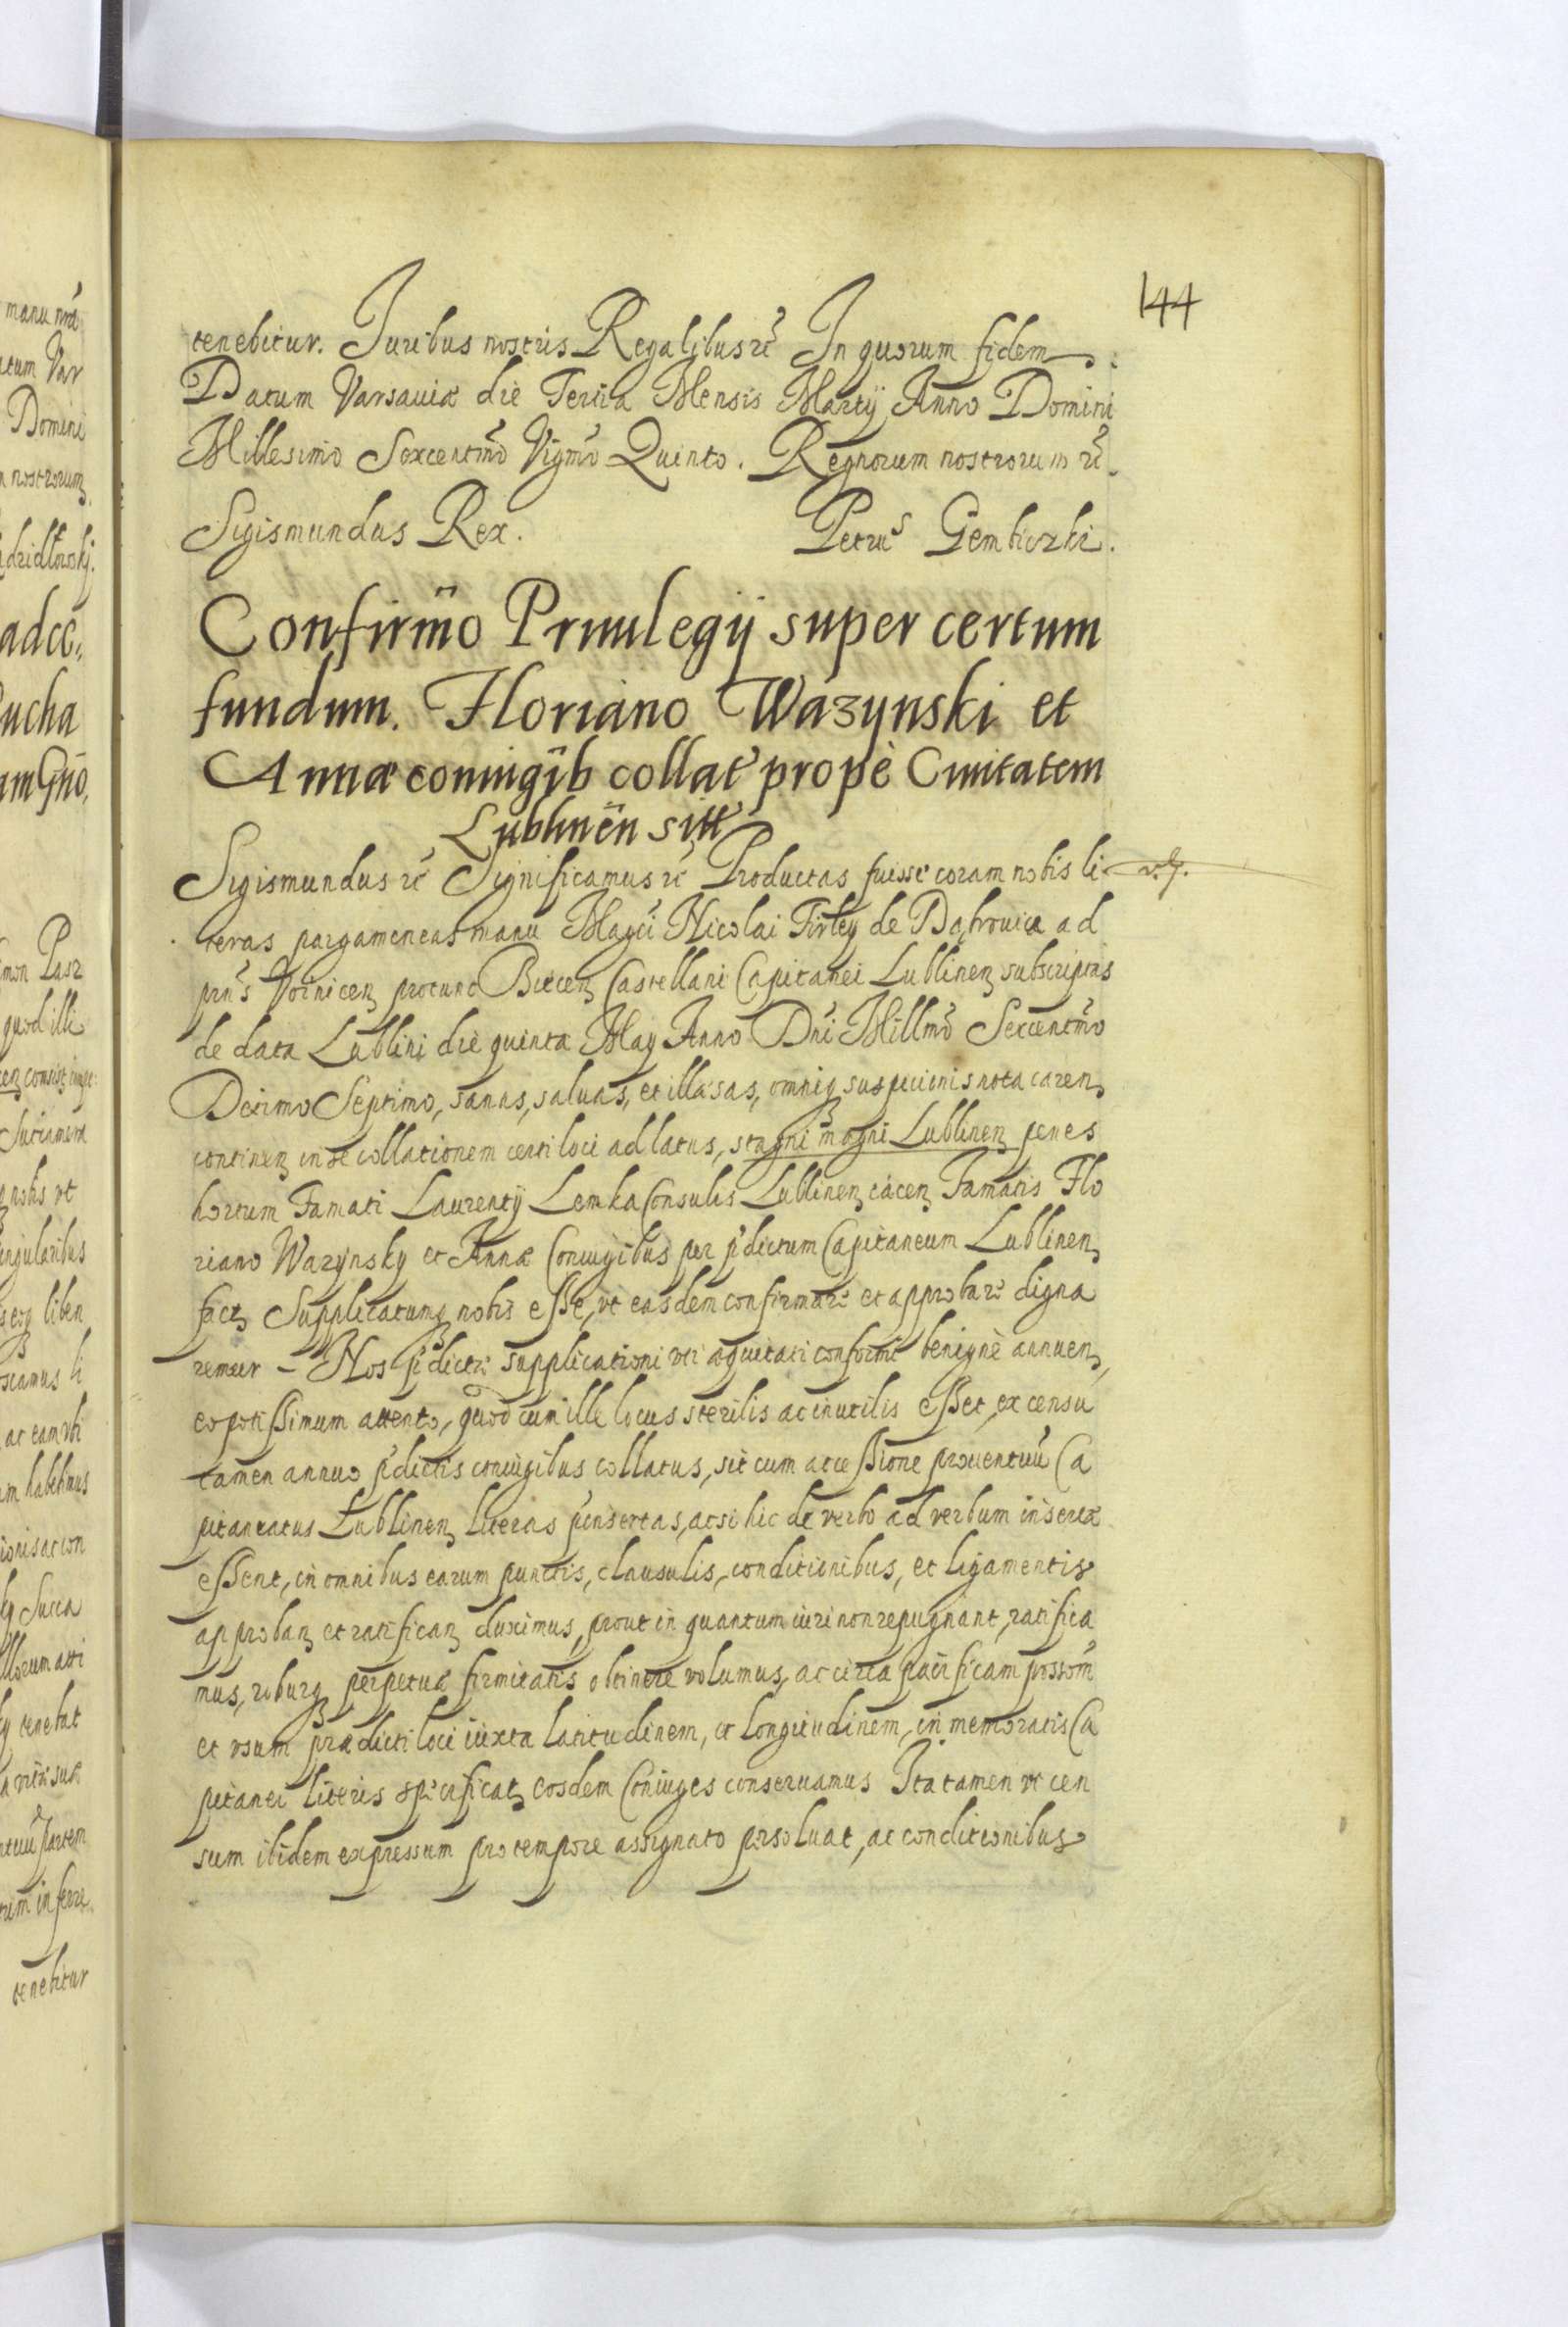 144
tenebitur. Juribus nostris Regalibus rc̄ In quorum fidem.
Datum Varsauiæ die Tertia Mensis Martij Anno Domini
Millesimo Sexcentm̄o Vigm̄o Quinto. Regnorum nostrorum rc̄.
Sigismundus Rex. Petrus Gembiczki.
Confirm̄o Priuilegij super certum
fundum. Floriano Wazynski et
Annæ coniugib collat prope Ciuitatem
Lublinen̄ sitt
Sigismundus rc̄ Significamus rc̄ Productas fuisse coram nobis li
teras pargameneas manu Magci Nicolai Firley de Dąbrouica ad
prn̄s Voinicen protunc Biecen Castellani Capitanei Lublinen subscriptas
de data Lublini die quinta Maij Anno Dn̄i Millm̄o Sexcentm̄o
Decimo Septimo, sanas, saluas, et illæsas, omniq suspicionis nota caren
continen in se collationem certi loci ad latus, stagni magni Lublinen penes
hortum Famati Laurentij Lemka Consulis Lublinen iacen Famatis Flo
riano Wazynsky et Annæ Coniugibus per p̄dictum Capitaneum Lublinen
fact Supplicatumq nobis esse, vt easdem confirmare et approbare digna
remur – Nos p̄dictæ supplicationi vti æquitati conformi benignè annuen,
eo potissimum attento, quod cum ille locus sterilis ac inutilis esset, ex censu
tamen annuo p̄dictis coniugibus collatus, sit cum accessione prouentuū Ca
pitaneatus Lublinen literas p̄insertas, acsi hic de verbo ad verbum insertæ
essent, in omnibus earum punctis, clausulis, conditionibus, et ligamentis
approban et ratifican duximus, prout in quantum iuri non repugnant, ratifica
mus, roburq perpetuæ firmitatis obtinere volumus, ac circa pacificam possom̄
et vsum prædicti loci iuxta latitudinem, et longitudinem, in memoratis Ca
pitanei literis specificat eosdem Coniuges conseruamus Ita tamen vt cen
sum ibidem expressum pro tempore assignato persoluat, ac conditionibus